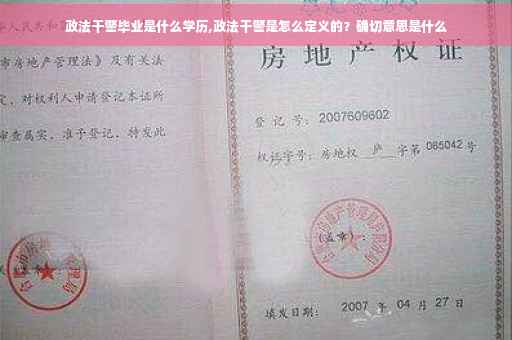 政法干警毕业是什么学历,政法干警是怎么定义的？确切意思是什么
人民共和
市房地产管理法》及有关法
定，对权利人申请登记本证所
审查属实，准予登记，特发此
房地产权证
登记号：2007609602
权证字号：房地权 庐 字第 085042 号
(盖章)：
填发日期：2007 年 04 月 27 日